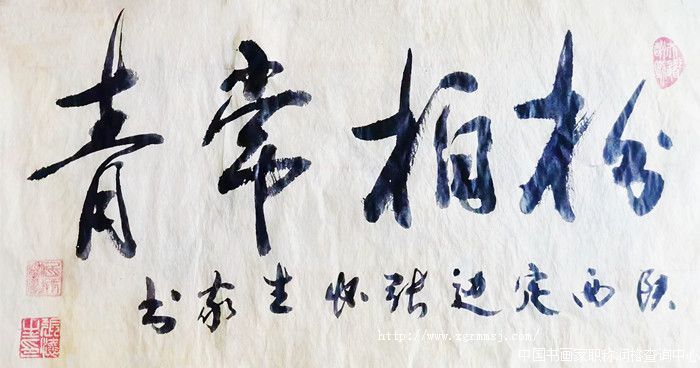 松柏常青
陕西定边张怀生敬书
http://www.zgrmmsj.com/
中国书画家职称润格查询中心